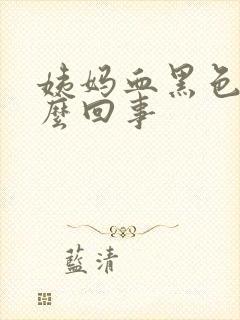 姨妈血黑色
麼回事
藍清